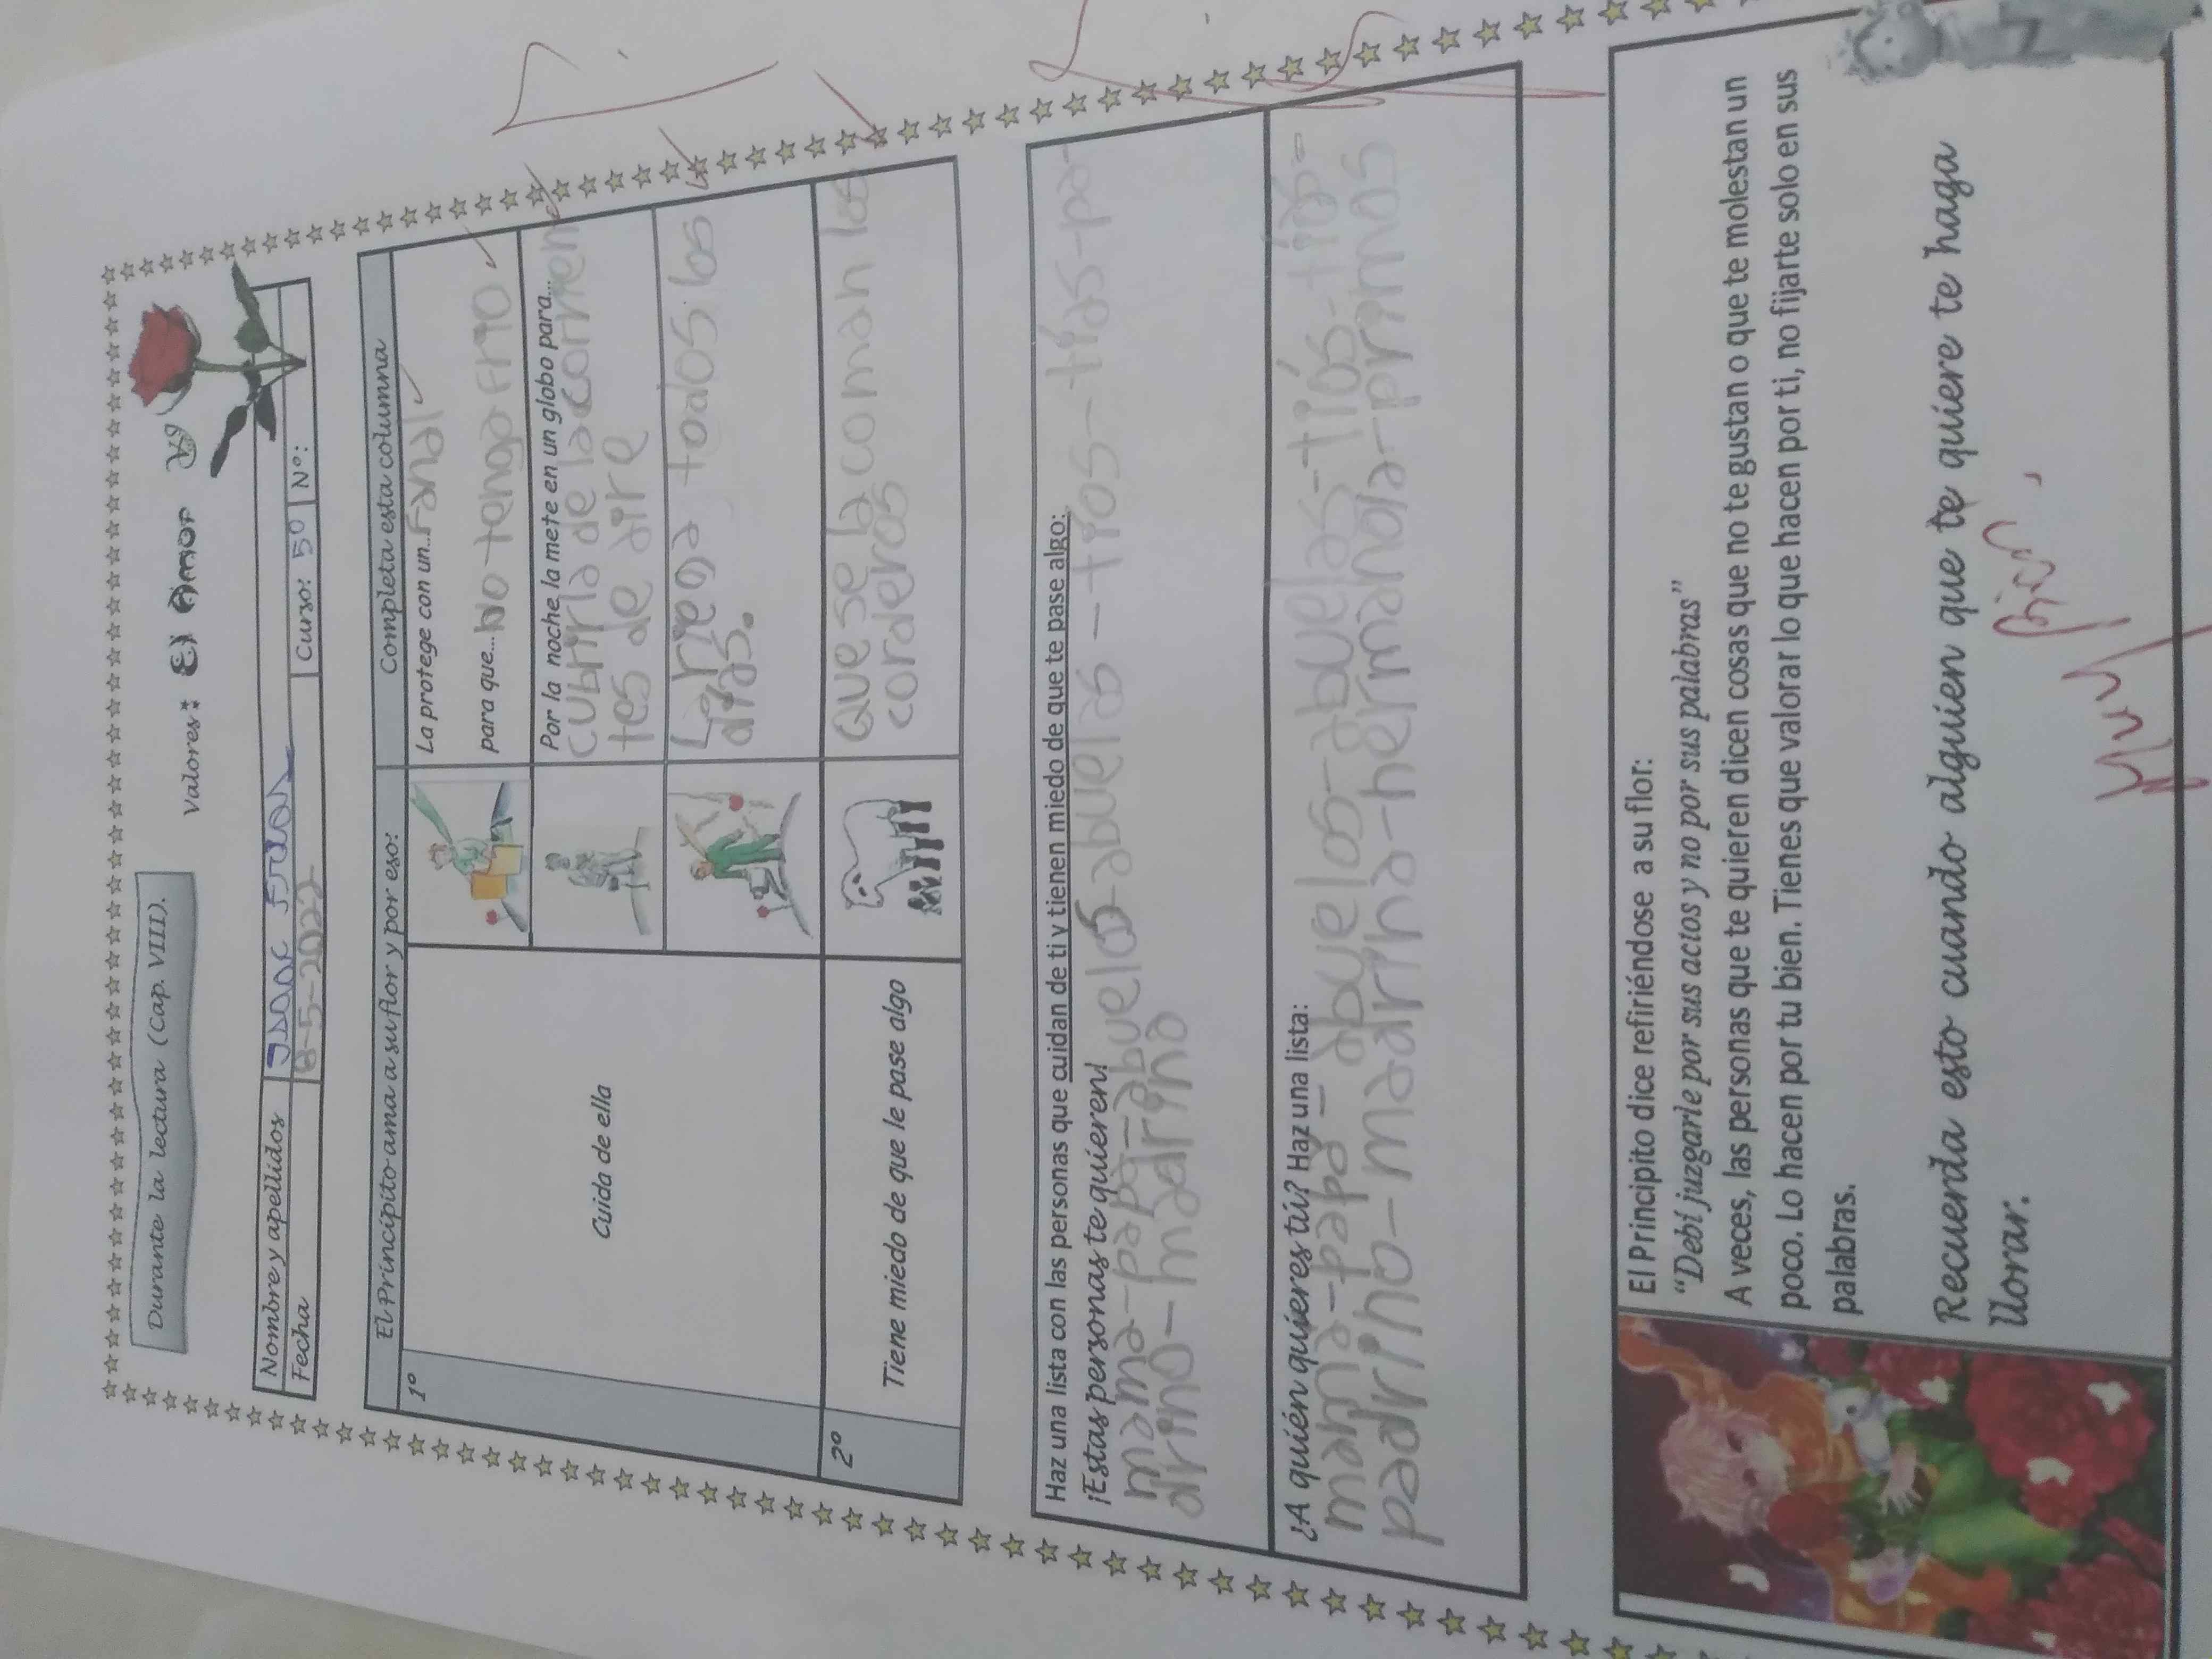 Durante la lectura (Cap. VIII).
Valores: El Amor
Nombre y apellidos Isaac
Fecha 8-5-2022 Curso: 5º Nº:
El Principito ama a su flor y por eso: Completa esta columna
1º Cuida de ella
La protege con un... Fanal
para que... No tenga Frio
Por la noche la mete en un globo para...
cubrirla de la corrien
tes de aire
La riega todos los
días.
2º Tiene miedo de que le pase algo
Que se la coman los
corderos
Haz una lista con las personas que cuidan de ti y tienen miedo de que te pase algo:
¡Estas personas te quieren!
mamá-papá-abuelos-abuelas-tíos-tías-pa-
drino-madrina
¿A quién quieres tú? Haz una lista:
mamá-papá-abuelos-abuelas-tíos-tías-
padrino-madrina-hermanola-primos
El Principito dice refiriéndose a su flor:
“Debí juzgarle por sus actos y no por sus palabras”
A veces, las personas que te quieren dicen cosas que no te gustan o que te molestan un
poco. Lo hacen por tu bien. Tienes que valorar lo que hacen por ti, no fijarte solo en sus
palabras.
Recuerda esto cuando alguien que te quiere te haga
llorar.
Muy bien.